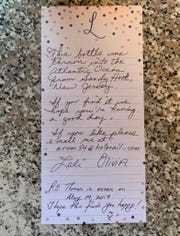 L
This bottle was
thrown into the
Atlantic Ocean
from Sandy Hook,
New Jersey.
If you find it we
hope you're having
a good day.
If you like please
email me at
@hotmail.com
Olivia
PS Throw is never on
May 19, 2019
I hope this finds you happy!